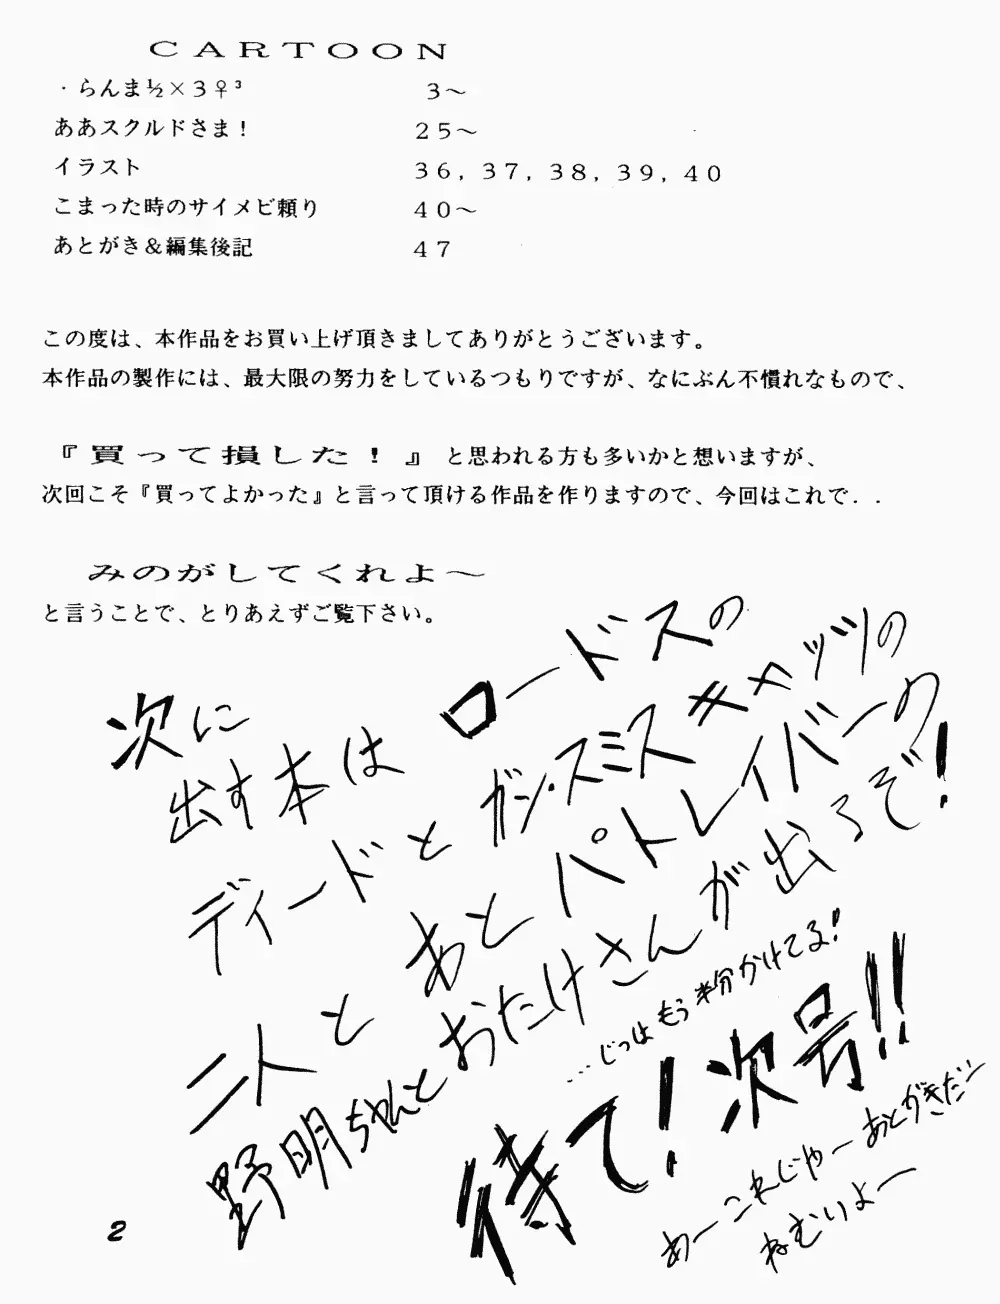 CARTOON
・らんま½×3♀³ 3〜
ああスクルドさま! 25〜
イラスト 36, 37, 38, 39, 40
こまった時のサイメビ頼り 40〜
あとがき&編集後記 47
この度は、本作品をお買い上げ頂きましてありがとうございます。
本作品の製作には、最大限の努力をしているつもりですが、なにぶん不慣れなもので、
『買って損した!』と思われる方も多いかと想いますが、
次回こそ『買ってよかった』と言って頂ける作品を作りますので、今回はこれで..
みのがしてくれよ〜
と言うことで、とりあえずご覧下さい。
次に
出す本は ロードスの
ディードと ガン・スミスキャッツの
二人と あとパトレイバーの
野明ちゃんとおたけさんが出るぞ!
…じつはもう半分かけてる!
待て!次号!!
あーこれじゃーあとがきだー
ねむいよー
2